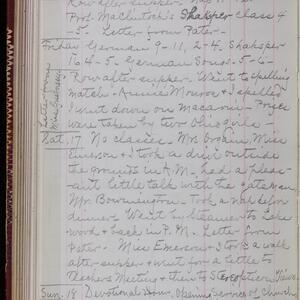 Row after supper.
Prof. MacClintock's Shaksper class 4
-5. Letter from Pater-
Friday German 9-11, 2-4. Shaksper
4-5- German Songs-5-6-
Row after supper- Went to spelling
match- Annie Monroe + I spelled
I went down on Macaroni- Prizes
were taken by two Ohio
Letter from
Miss
Sat. 17 No classes. Mr. Miss
Emerson + I took a drive outside
the grounds in A.M. had a pleas-
ant little talk with the gateman
Mr. Took a walk before
dinner. Went by steamer to Lake
wood + back in P.M. Letter from
Pater- Miss Emerson + I took a walk
after supper + went for a little to
Teachers Meeting + then to Stereopticon Views
Sun. 18 Devotional Hour, Opening Services of Church